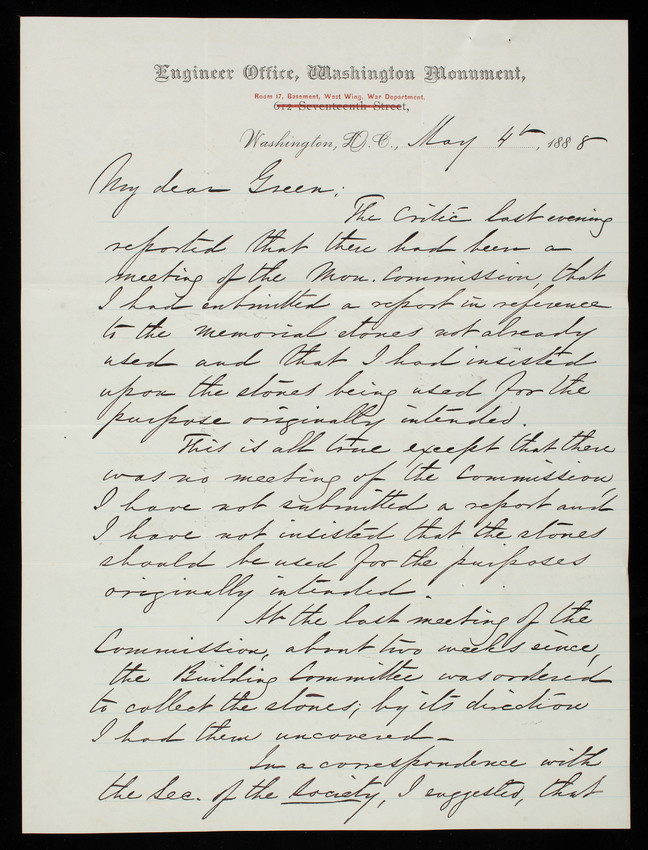 Engineer Office, Washington Monument,
Room 17, Basement, West Wing, War Department,
612 Seventeenth Street,
Washington, D.C., May 4th, 1888
My dear Green:
The Critic last evening
reported that there had been a
meeting of the Mon. Commission, that
I had submitted a report in reference
to the memorial stones not already
used and that I had insisted
upon the stones being used for the
purpose originally intended.
This is all true except that there
was no meeting of the Commission,
I have not submitted a report and
I have not insisted that the stones
should be used for the purposes
originally intended.
At the last meeting of the
Commission, about two weeks since,
the Building Committee was ordered
to collect the stones; by its direction
I had them uncovered –
In a correspondence with
the Sec. of the Society, I suggested, that